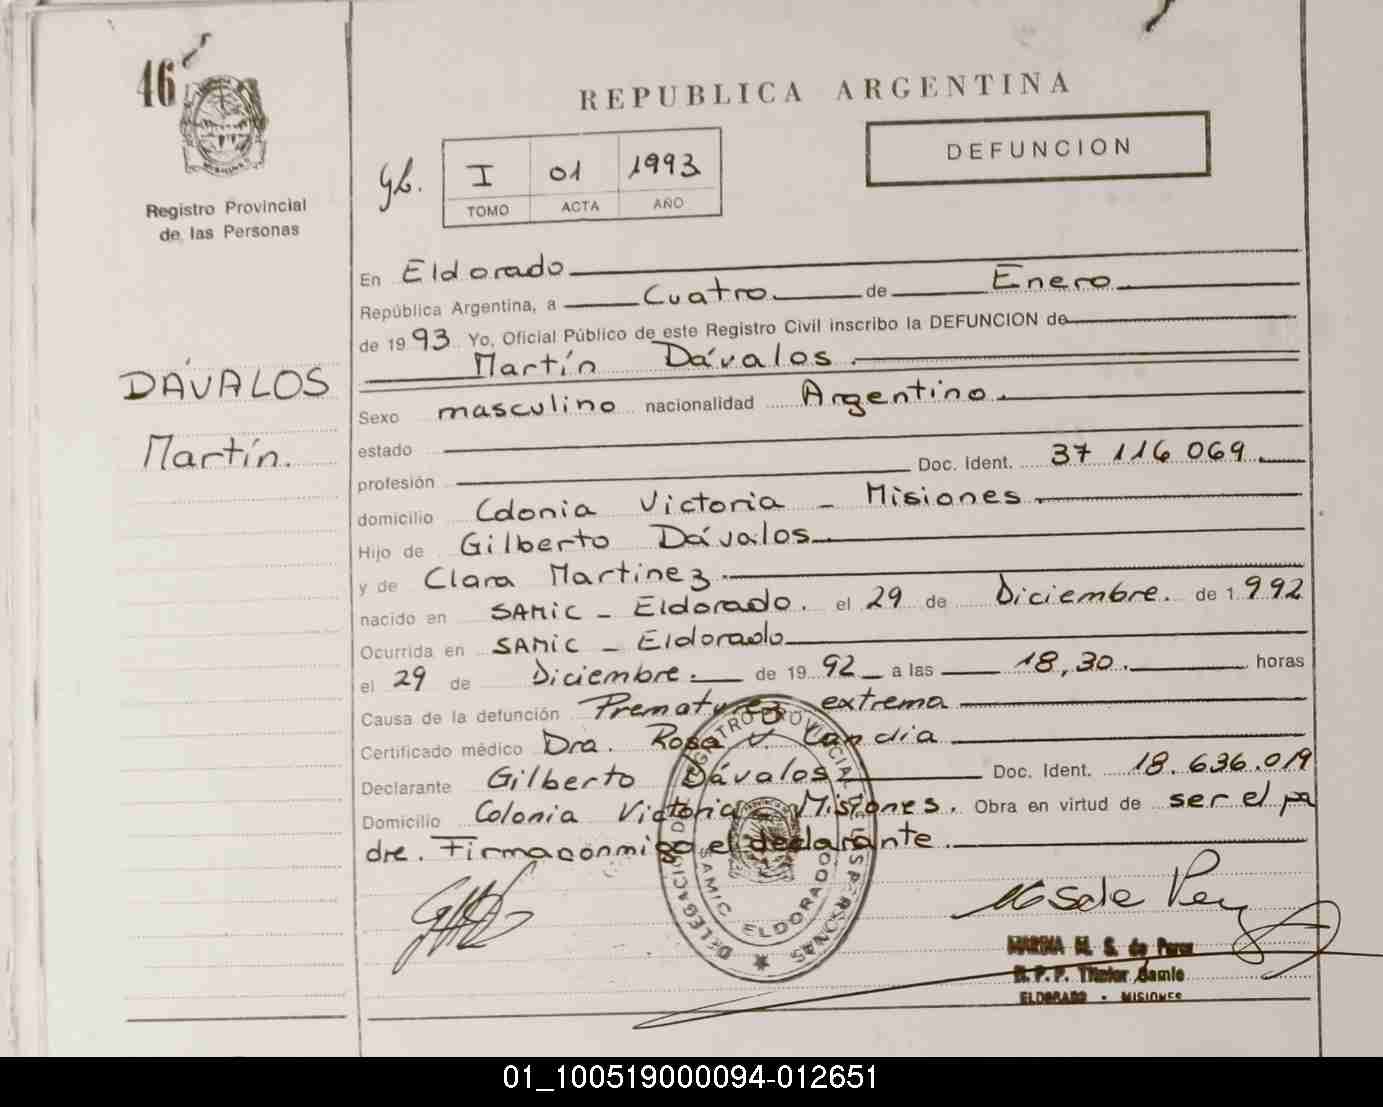 46
Registro Provincial
de las Personas
DÁVALOS
Martín.
REPUBLICA ARGENTINA
DEFUNCION
I 01 1993
TOMO ACTA AÑO
En Eldorado
República Argentina, a Cuatro de Enero
de 1993 Yo, Oficial Público de este Registro Civil inscribo la DEFUNCION de
Martín Dávalos.
Sexo masculino nacionalidad Argentino.
estado
profesión Doc. Ident. 37 116 069.
domicilio Colonia Victoria - Misiones.
Hijo de Gilberto Dávalos.
y de Clara Martinez.
nacido en SAMIC - Eldorado. el 29 de Diciembre. de 1.992
Ocurrida en SAMIC - Eldorado
el 29 de Diciembre. de 1992 a las 18,30. horas
Causa de la defunción Prematurez extrema
Certificado médico Dra. Rosa V. Candia
Declarante Gilberto Dávalos Doc. Ident. 18.636.019
Domicilio Colonia Victoria Misiones. Obra en virtud de ser el pa
dre. Firma conmigo el declarante.
DELEGACION DE REGISTRO PROVINCIAL DE LAS PERSONAS
SAMIC ELDORADO
MARINA M. S. de Perez
ELDORADO - MISIONES
01_100519000094-012651